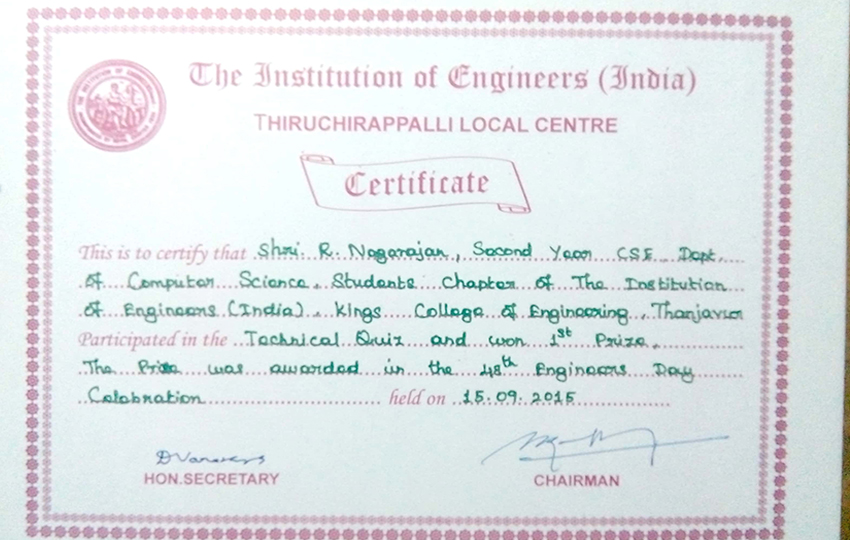 The Institution of Engineers (India)
THIRUCHIRAPPALLI LOCAL CENTRE
Certificate
This is to certify that Shri. R. Nagarajan, Second Year CSE Dept.
of Computer Science, Students Chapter of The Institution
of Engineers (India), Kings College of Engineering, Thanjavur
Participated in the Technical Quiz and won 1st Prize.
The Prize was awarded in the 48th Engineers Day
Celebration held on 15.09.2015
HON.SECRETARY
CHAIRMAN